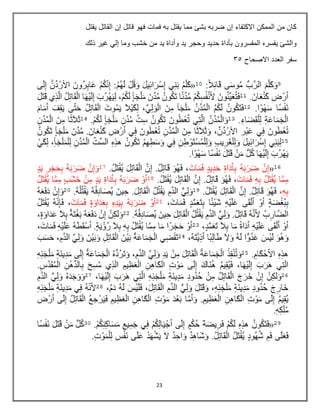 كان من الممكن الاكتفاء إن ضربه بشئ مما يقتل به فمات فهو قاتل إن القاتل يقتل
والشئ يفسره المفسرون بأداة حديد وحجر يد وأداة يد من خشب وما إلي غير ذلك
سفر العدد الاصحاح ٣٥
9وَكَلَّمَ الرَّبُّ مُوسَى قَائِلاً: 10«كَلِّمْ بَنِي إِسْرَائِيلَ وَقُلْ لَهُمْ: إِنَّكُمْ عَابِرُونَ الأُرْدُنَّ إِلَى
أَرْضِ كَنْعَانَ. 11فَتُعَيِّنُونَ لأَنْفُسِكُمْ مُدُنًا تَكُونُ مُدُنَ مَلْجَأٍ لَكُمْ، لِيَهْرُبَ إِلَيْهَا الْقَاتِلُ الَّذِي قَتَلَ
نَفْسًا سَهْوًا. 12فَتَكُونُ لَكُمُ الْمُدُنُ مَلْجَأً مِنَ الْوَلِيِّ، لِكَيْلاَ يَمُوتَ الْقَاتِلُ حَتَّى يَقِفَ أَمَامَ
الْجَمَاعَةِ لِلْقَضَاءِ. 13وَالْمُدُنُ الَّتِي تُعْطُونَ تَكُونُ سِتَّ مُدُنِ مَلْجَأٍ لَكُمْ. 14ثَلاَثًا مِنَ الْمُدُنِ
تُعْطُونَ فِي عَبْرِ الأُرْدُنِّ، وَثَلاَثًا مِنَ الْمُدُنِ تُعْطُونَ فِي أَرْضِ كَنْعَانَ. مُدُنَ مَلْجَأٍ تَكُونُ
15لِبَنِي إِسْرَائِيلَ وَلِلْغَرِيبِ وَلِلْمُسْتَوْطِنِ فِي وَسْطِهِمْ تَكُونُ هذِهِ السِّتُّ الْمُدُنُ لِلْمَلْجَإِ، لِكَيْ
يَهْرُبَ إِلَيْهَا كُلُّ مَنْ قَتَلَ نَفْسًا سَهْوًا.
16«إِنْ ضَرَبَهُ بِأَدَاةِ حَدِيدٍ فَمَاتَ، فَهُوَ قَاتِلٌ. إِنَّ الْقَاتِلَ يُقْتَلُ. 17وَإِنْ ضَرَبَهُ بِحَجَرِ يَدٍ
مِمَّا يُقْتَلُ بِهِ فَمَاتَ، فَهُوَ قَاتِلٌ. إِنَّ الْقَاتِلَ يُقْتَلُ. 18أَوْ ضَرَبَهُ بِأَدَاةِ يَدٍ مِنْ خَشَبٍ مِمَّا يُقْتَلُ
بِهِ، فَهُوَ قَاتِلٌ. إِنَّ الْقَاتِلَ يُقْتَلُ. 19وَلِيُّ الدَّمِ يَقْتُلُ الْقَاتِلَ. حِينَ يُصَادِفُهُ يَقْتُلُهُ. 20وَإِنْ دَفَعَهُ
بِبُغْضَةٍ أَوْ أَلْقَى عَلَيْهِ شَيْئًا بِتَعَمُّدٍ فَمَاتَ، 21أَوْ ضَرَبَهُ بِيَدِهِ بِعَدَاوَةٍ فَمَاتَ، فَإِنَّهُ يُقْتَلُ
الضَّارِبُ لأَنَّهُ قَاتِلٌ. وَلِيُّ الدَّمِ يَقْتُلُ الْقَاتِلَ حِينَ يُصَادِفُهُ. 22وَلكِنْ إِنْ دَفَعَهُ بَغْتَةً بِلاَ عَدَاوَةٍ،
أَوْ أَلْقَى عَلَيْهِ أَدَاةً مَّا بِلاَ تَعَمُّدٍ، 23أَوْ حَجَرًا مَّا مِمَّا يُقْتَلُ بِهِ بِلاَ رُؤْيَةٍ. أَسْقَطَهُ عَلَيْهِ فَمَاتَ،
وَهُوَ لَيْسَ عَدُوًّا لَهُ وَلاَ طَالِبًا أَذِيَّتَهُ، 24تَقْضِي الْجَمَاعَةُ بَيْنَ الْقَاتِلِ وَبَيْنَ وَلِيِّ الدَّمِ، حَسَبَ
هذِهِ الأَحْكَامِ. 25وَتُنْقِذُ الْجَمَاعَةُ الْقَاتِلَ مِنْ يَدِ وَلِيِّ الدَّمِ، وَتَرُدُّهُ الْجَمَاعَةُ إِلَى مَدِينَةِ مَلْجَئِهِ
الَّتِي هَرَبَ إِلَيْهَا، فَيُقِيمُ هُنَاكَ إِلَى مَوْتِ الْكَاهِنِ الْعَظِيمِ الَّذِي مُسِحَ بِالدُّهْنِ الْمُقَدَّسِ.
26وَلكِنْ إِنْ خَرَجَ الْقَاتِلُ مِنْ حُدُودِ مَدِينَةِ مَلْجَئِهِ الَّتِي هَرَبَ إِلَيْهَا، 27وَوَجَدَهُ وَلِيُّ الدَّمِ
خَارِجَ حُدُودِ مَدِينَةِ مَلْجَئِهِ، وَقَتَلَ وَلِيُّ الدَّمِ الْقَاتِلَ، فَلَيْسَ لَهُ دَمٌ، 28لأَنَّهُ فِي مَدِينَةِ مَلْجَئِهِ
يُقِيمُ إِلَى مَوْتِ الْكَاهِنِ الْعَظِيمِ. وَأَمَّا بَعْدَ مَوْتِ الْكَاهِنِ الْعَظِيمِ فَيَرْجِعُ الْقَاتِلُ إِلَى أَرْضِ
مُلْكِهِ.
29«فَتَكُونُ هذِهِ لَكُمْ فَرِيضَةَ حُكْمٍ إِلَى أَجْيَالِكُمْ فِي جَمِيعِ مَسَاكِنِكُمْ. 30كُلُّ مَنْ قَتَلَ نَفْسًا
فَعَلَى فَمِ شُهُودٍ يُقْتَلُ الْقَاتِلُ. وَشَاهِدٌ وَاحِدٌ لاَ يَشْهَدْ عَلَى نَفْسٍ لِلْمَوْتِ.
23